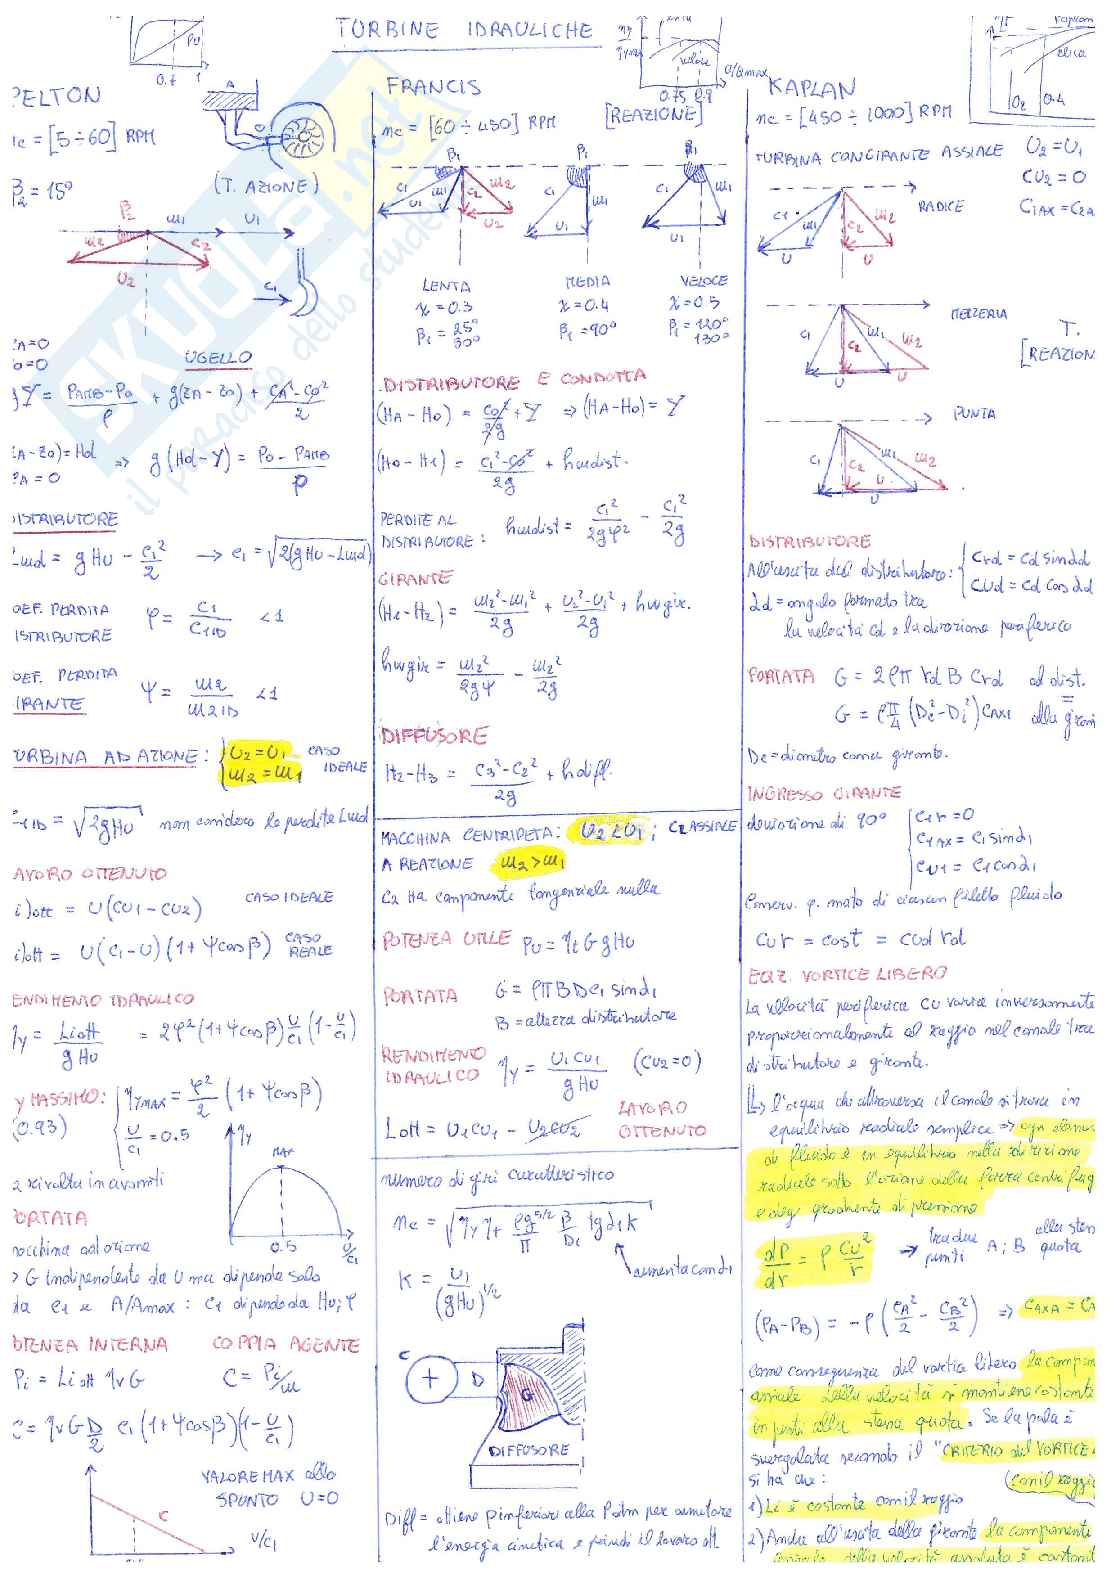 TURBINE IDRAULICHE
PELTON
nc = [5÷60] RPM
β2 = 15°
(T. AZIONE)
A
0
0.7 1
w1 u1
w2 c2
u2
c1
zA=0
UGELLO
gY = PAMB-P0/ρ + g(zA-z0) + cA²-c0²/2
(zA-z0)=Hd
PA=0
⇒ g(Hd-Y) = P0-PAMB/ρ
DISTRIBUTORE
Lwd = gHu - c1²/2 → c1 = √2(gHu-Lwd)
DEF. PERDITA
DISTRIBUTORE
φ = c1/c1ID <1
DEF. PERDITA
GIRANTE
ψ = w2/w2ID <1
TURBINA AD AZIONE: { U2=U1 CASO
w2=w1 IDEALE
c1ID = √2gHu non considero le perdite Lwd
LAVORO OTTENUTO
Li)ott = U(cU1-cU2) CASO IDEALE
Li)ott = U(c1-U)(1+ψcosβ) CASO REALE
RENDIMENTO IDRAULICO
ηy = Liott/gHu = 2φ²(1+ψcosβ)U/c1(1-U/c1)
ηy MASSIMO:
(0.93)
{ ηyMAX = φ²/2 (1+ψcosβ)
U/c1 = 0.5
ηy
MAX
0.5 U/c1
è rivolta in avanti
PORTATA
macchina ad azione
→ G indipendente da U ma dipende solo
da c1 e A/Amax: c1 dipende da Hu; φ
POTENZA INTERNA COPPIA AGENTE
Pi = Liott ηvG C = Pi/ω
C = ηvG D/2 c1(1+ψcosβ)(1-U/c1)
VALORE MAX allo
SPUNTO U=0
C
U/c1
FRANCIS
nc = [60÷450] RPM [REAZIONE]
veloce
0.75 0.9
Q/Qmax
β1 β1 β1
LENTA MEDIA VELOCE
χ=0.3 χ=0.4 χ=0.5
β1 = 25° 30° β1=90° β1=120° 130°
DISTRIBUTORE E CONDOTTA
(HA-H0) = c0²/2g + Y ⇒ (HA-H0) = Y
(H0-H1) = c1²-c0²/2g + hwdist.
PERDITE AL
DISTRIBUTORE: hwdist = c1²/2gφ² - c1²/2g
GIRANTE
(H1-H2) = w2²-w1²/2g + U2²-U1²/2g + hwgir.
hwgir = w2²/2gψ - w2²/2g
DIFFUSORE
H2-H3 = c3²-c2²/2g + hdiff.
MACCHINA CENTRIPETA: U2<U1; c2 ASSIALE
A REAZIONE w2>w1
c2 ha componente tangenziale nulla
POTENZA UTILE PU = ηt G gHu
PORTATA G = ρπBDc1 sinα1
B = altezza distributore
RENDIMENTO
IDRAULICO ηy = U1cU1/gHu (cU2=0)
Lott = U1cU1 - U2cU2 LAVORO OTTENUTO
numero di giri caratteristico
nc = √ηy ηt ρg^5/2/π B/D1 tgα1 k
aumenta con α1
K = U1/(gHu)^1/2
C
D
G
DIFFUSORE
Diff = ottiene p inferiori alla Patm per aumentare
l'energia cinetica e quindi il lavoro ott
KAPLAN
nc = [450÷1000] RPM
kaplan
elica
0.4
TURBINA CONGIRANTE ASSIALE U2=U1
cU2=0
c1AX=c2A
RADICE
MEZZERIA
T.
[REAZION
PUNTA
DISTRIBUTORE
All'uscita del distributore: { crd = cd sinαd
cUd = cd cosαd
αd = angolo formato tra
la velocità cd e la direzione periferica
PORTATA G = 2ρπ rd B crd al dist.
G = ρπ/4 (De²-Di²) cAX1 alla giran
De = diametro girante.
INGRESSO GIRANTE
deviazione di 90° { c1r=0
c1AX = c1sinα1
cU1 = c1cosα1
Conserv. q. moto di ciascun filetto fluido
cU r = cost = cUd rd
EQZ. VORTICE LIBERO
La velocità periferica cU varia inversamente
proporzionalmente al raggio nel canale tra
distributore e girante.
↳ l'acqua che attraversa il canale si trova in
equilibrio radiale semplice ⇒ ogni elemen
di fluido è in equilibrio nella direzione
radiale sotto l'azione della forza centrifug
e del gradiente di pressione
dP/dr = ρ cU²/r → tra due punti A; B alla stess quota
(PA-PB) = -ρ(cA²/2 - cB²/2) ⇒ cAXA = cA
Come conseguenza del vortice libero la compon
assiale della velocità si mantiene costante
in punti alla stessa quota. Se la pala è
svergolata secondo il "CRITERIO del VORTICE
si ha che: (con il raggio
1) Li è costante con il raggio
2) Anche all'uscita della girante la componente
assiale della velocità assoluta è costant
SKUOLA.net
il paradiso dello studente